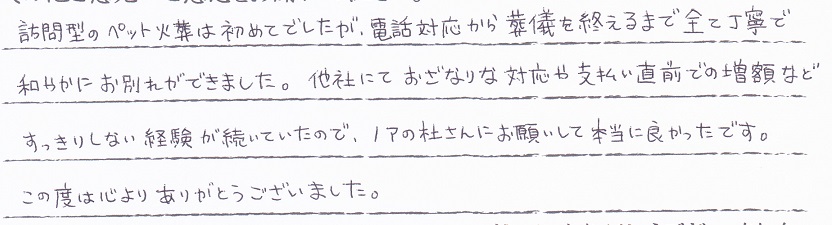 訪問型のペット火葬は初めてでしたが、電話対応から葬儀を終えるまで全て丁寧で
和やかにお別れができました。他社にておざなりな対応や支払い直前での増額など
すっきりしない経験が続いていたので、ノアの杜さんにお願いして本当に良かったです。
この度は心よりありがとうございました。